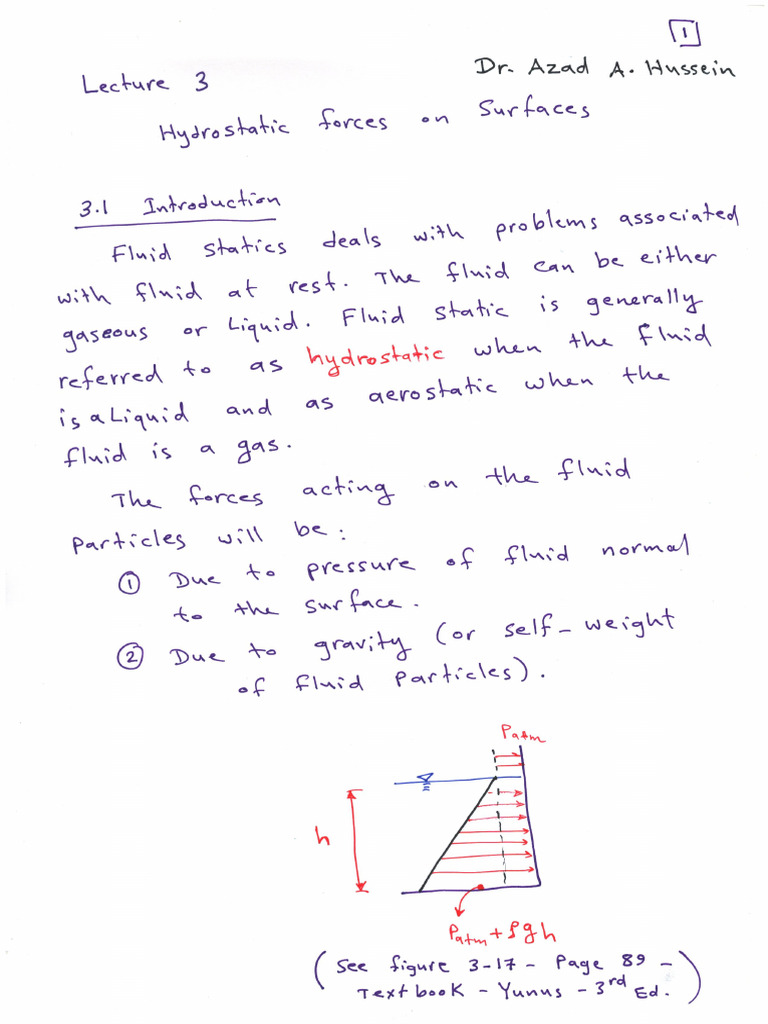 1
Lecture 3
Dr. Azad A. Hussein
Hydrostatic forces on Surfaces
3.1 Introduction
Fluid statics deals with problems associated
with fluid at rest. The fluid can be either
gaseous or Liquid. Fluid static is generally
referred to as hydrostatic when the fluid
is a Liquid and as aerostatic when the
fluid is a gas.
The forces acting on the fluid
Particles will be:
① Due to pressure of fluid normal
to the surface.
② Due to gravity (or self-weight
of fluid Particles).
Patm
h
Patm + ρgh
(See figure 3-17 - Page 89 -
Textbook - Yunus - 3rd Ed.)